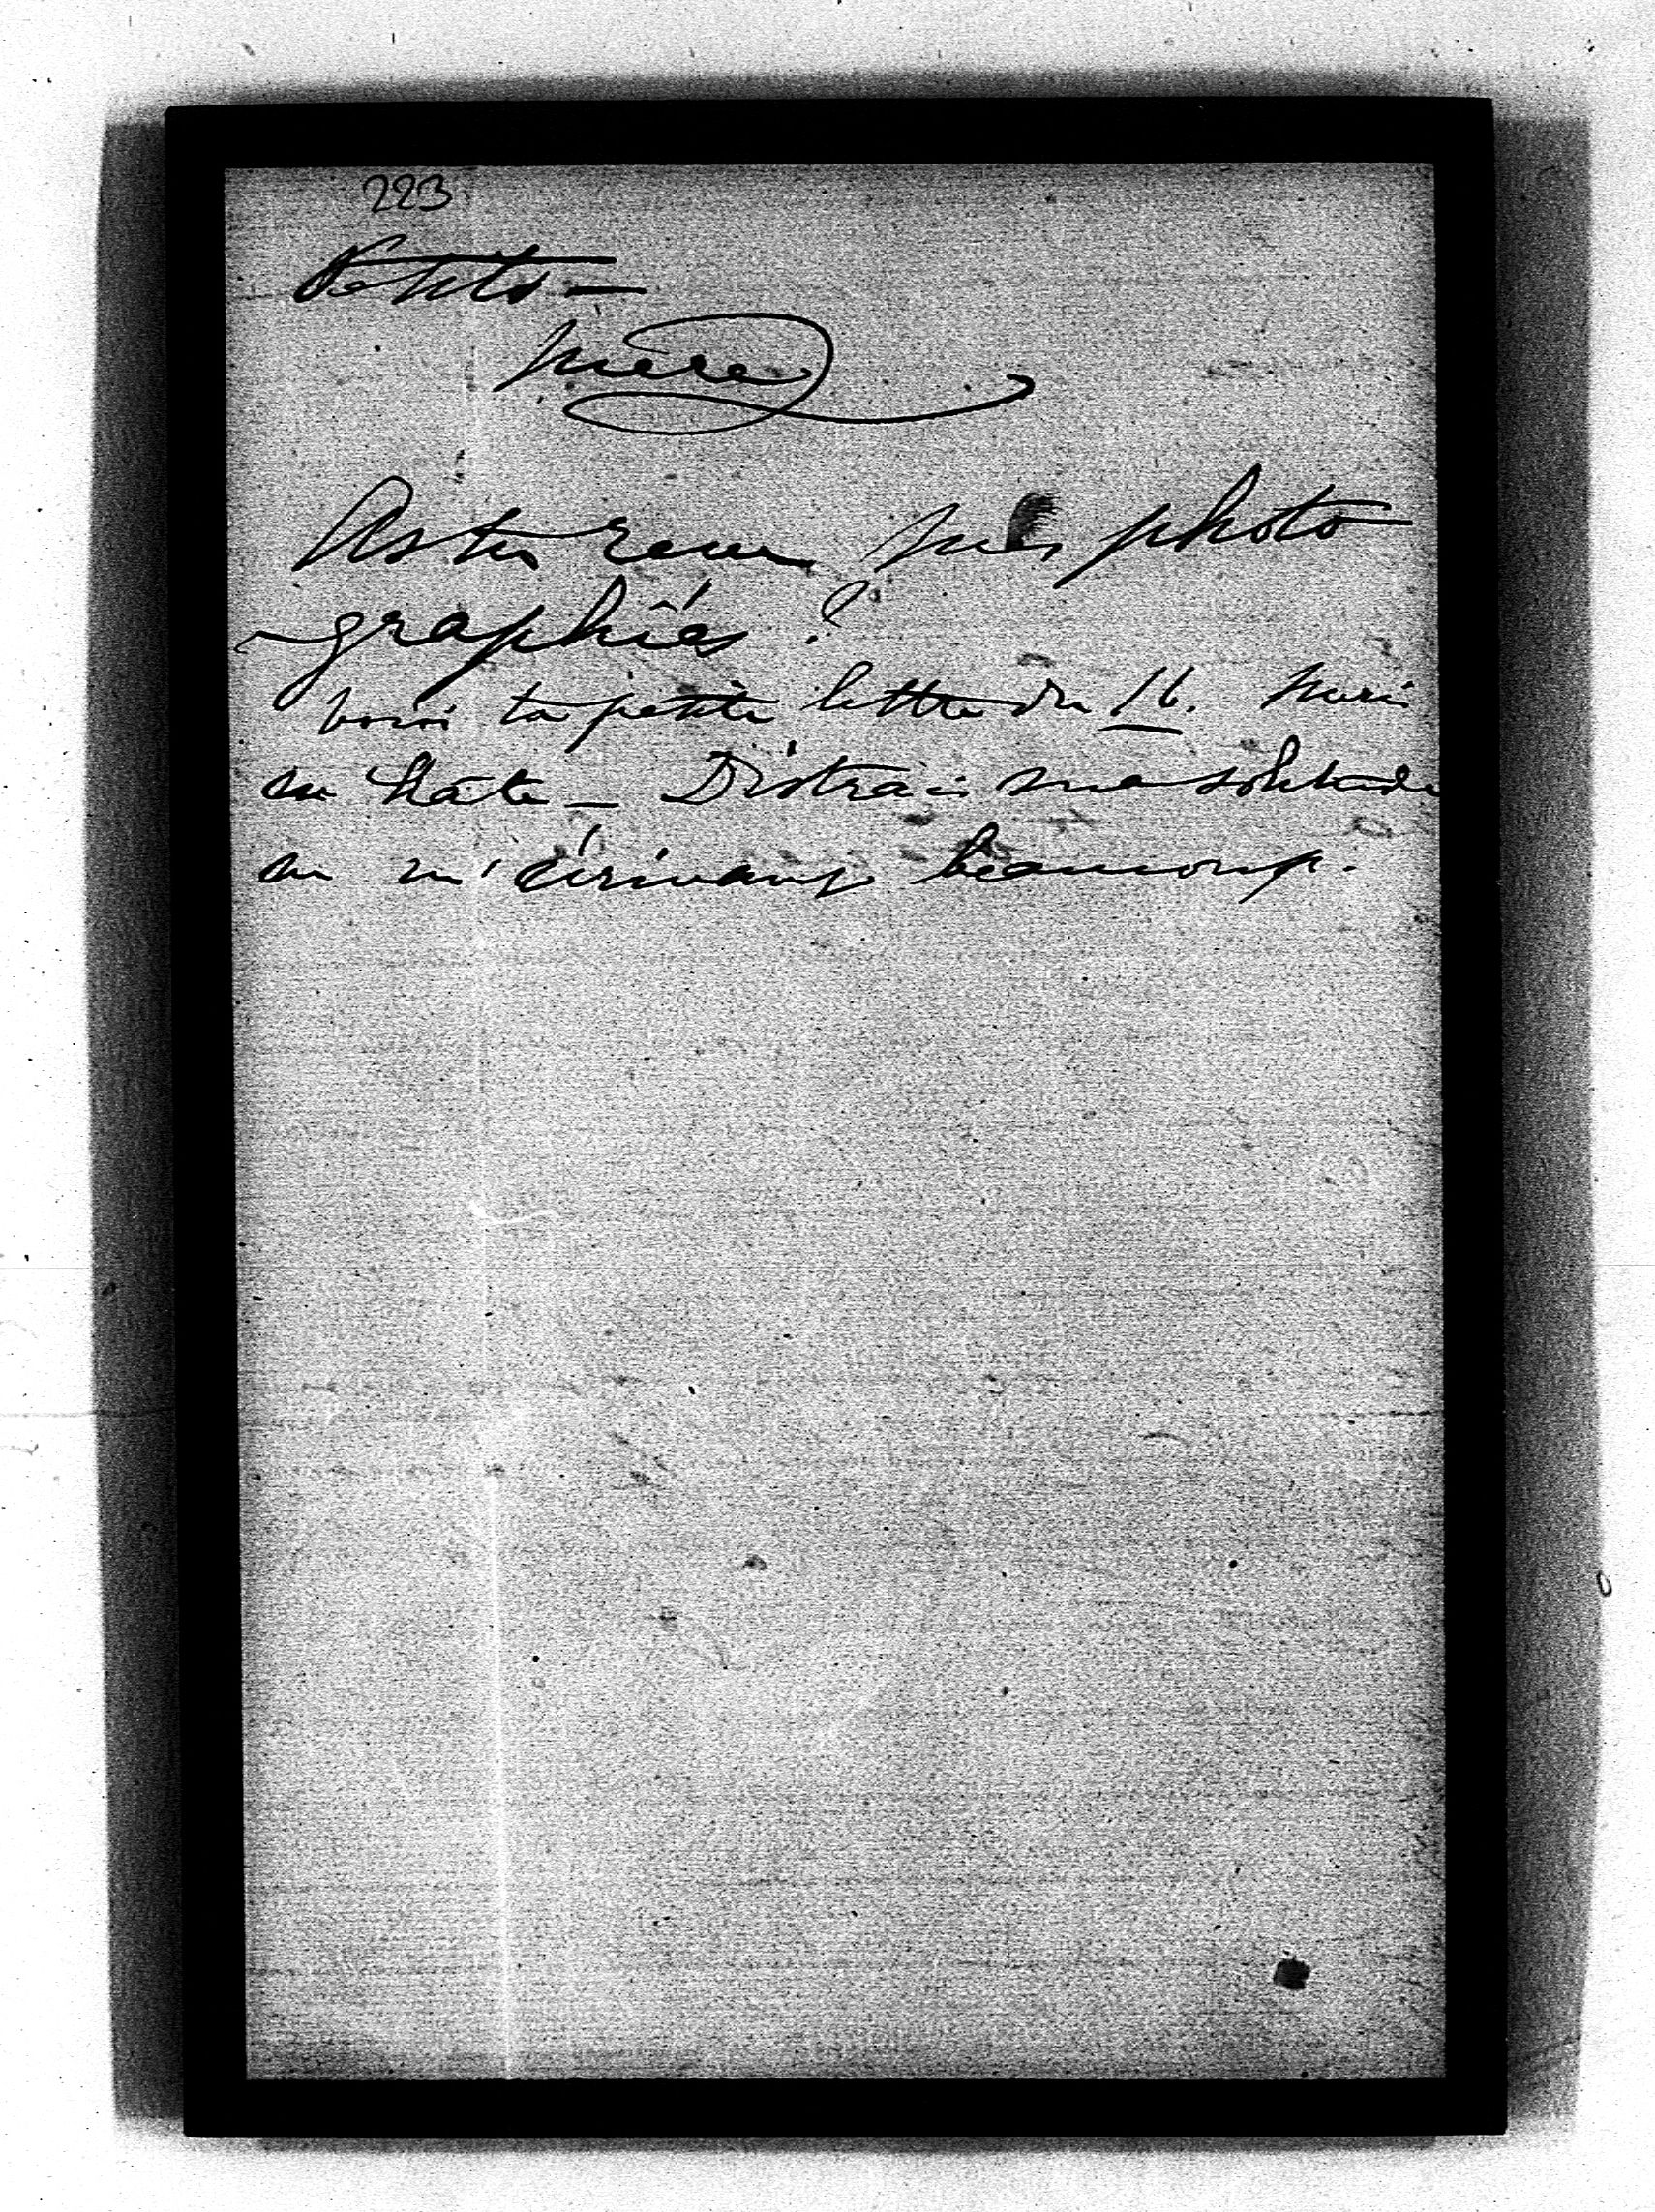 223
Petite —
mère
As tu reçu mes photo
-graphies ?
voici ta petite lettre du 16. Merci
en hâte — Distrais ma solitude
en m'écrivant beaucoup.